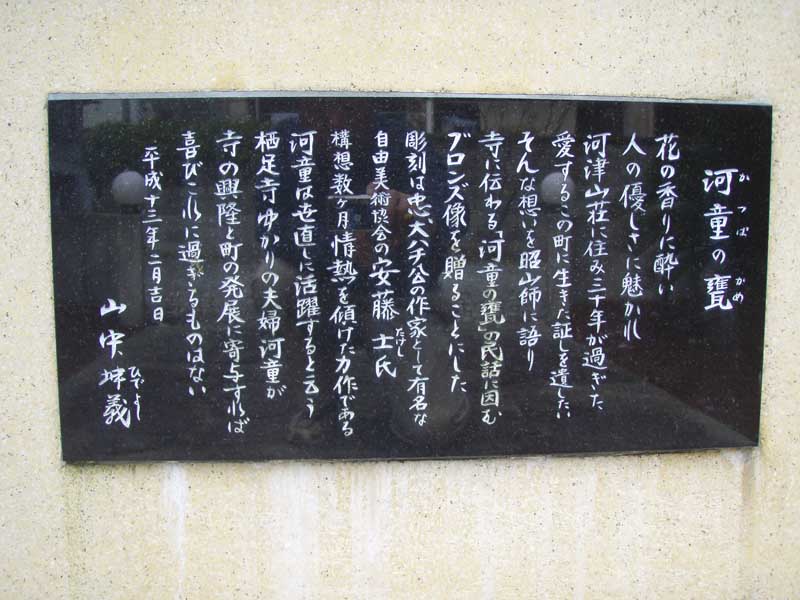 河童の甕
かっぱ がめ
花の香りに酔い
人の優しさに魅かれ
河津山荘に住み三十年が過ぎた
愛するこの町に生きた証しを遺したい
そんな想いを昭山師に語り
寺に伝わる「河童の甕」の民話に因む
ブロンズ像を贈ることにした
彫刻は忠犬ハチ公の作家として有名な
自由美術協会の安藤 士氏
たけし
構想数ヶ月情熱を傾けた力作である
河童は世直しに活躍すると云う
栖足寺ゆかりの夫婦河童が
寺の興隆と町の発展に寄与すれば
喜びこれに過ぎるものはない
平成十三年二月吉日
山中 義
ひでよし